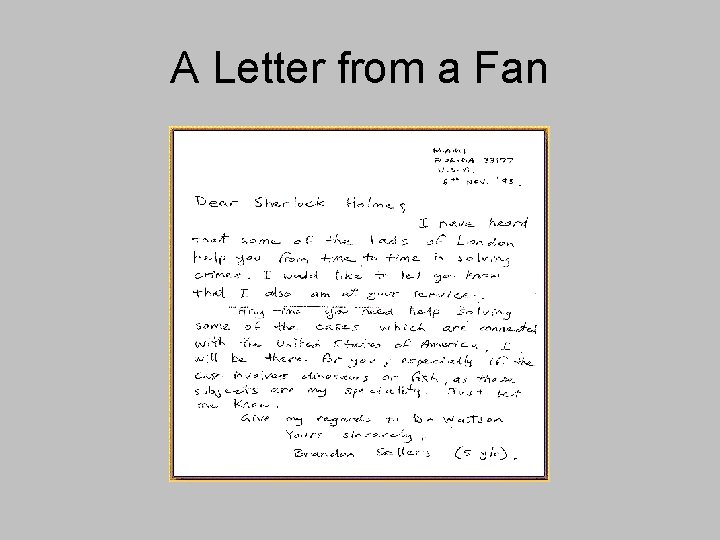 A Letter from a Fan
MIAMI
FLORIDA 33177
U.S.A.
6th NOV. '93.
Dear Sherlock Holmes,
I have heard
that some of the lads of London
help you from time to time in solving
crimes. I would like to let you know
that I also am at your service.
Any time you need help solving
some of the cases which are connected
with the United States of America, I
will be there for you, especially if the
case involves dinosaurs or fish, as these
subjects are my speciality. Just let
me know.
Give my regards to Dr Watson
Yours sincerely,
Brandon Sellers (5 y/o).